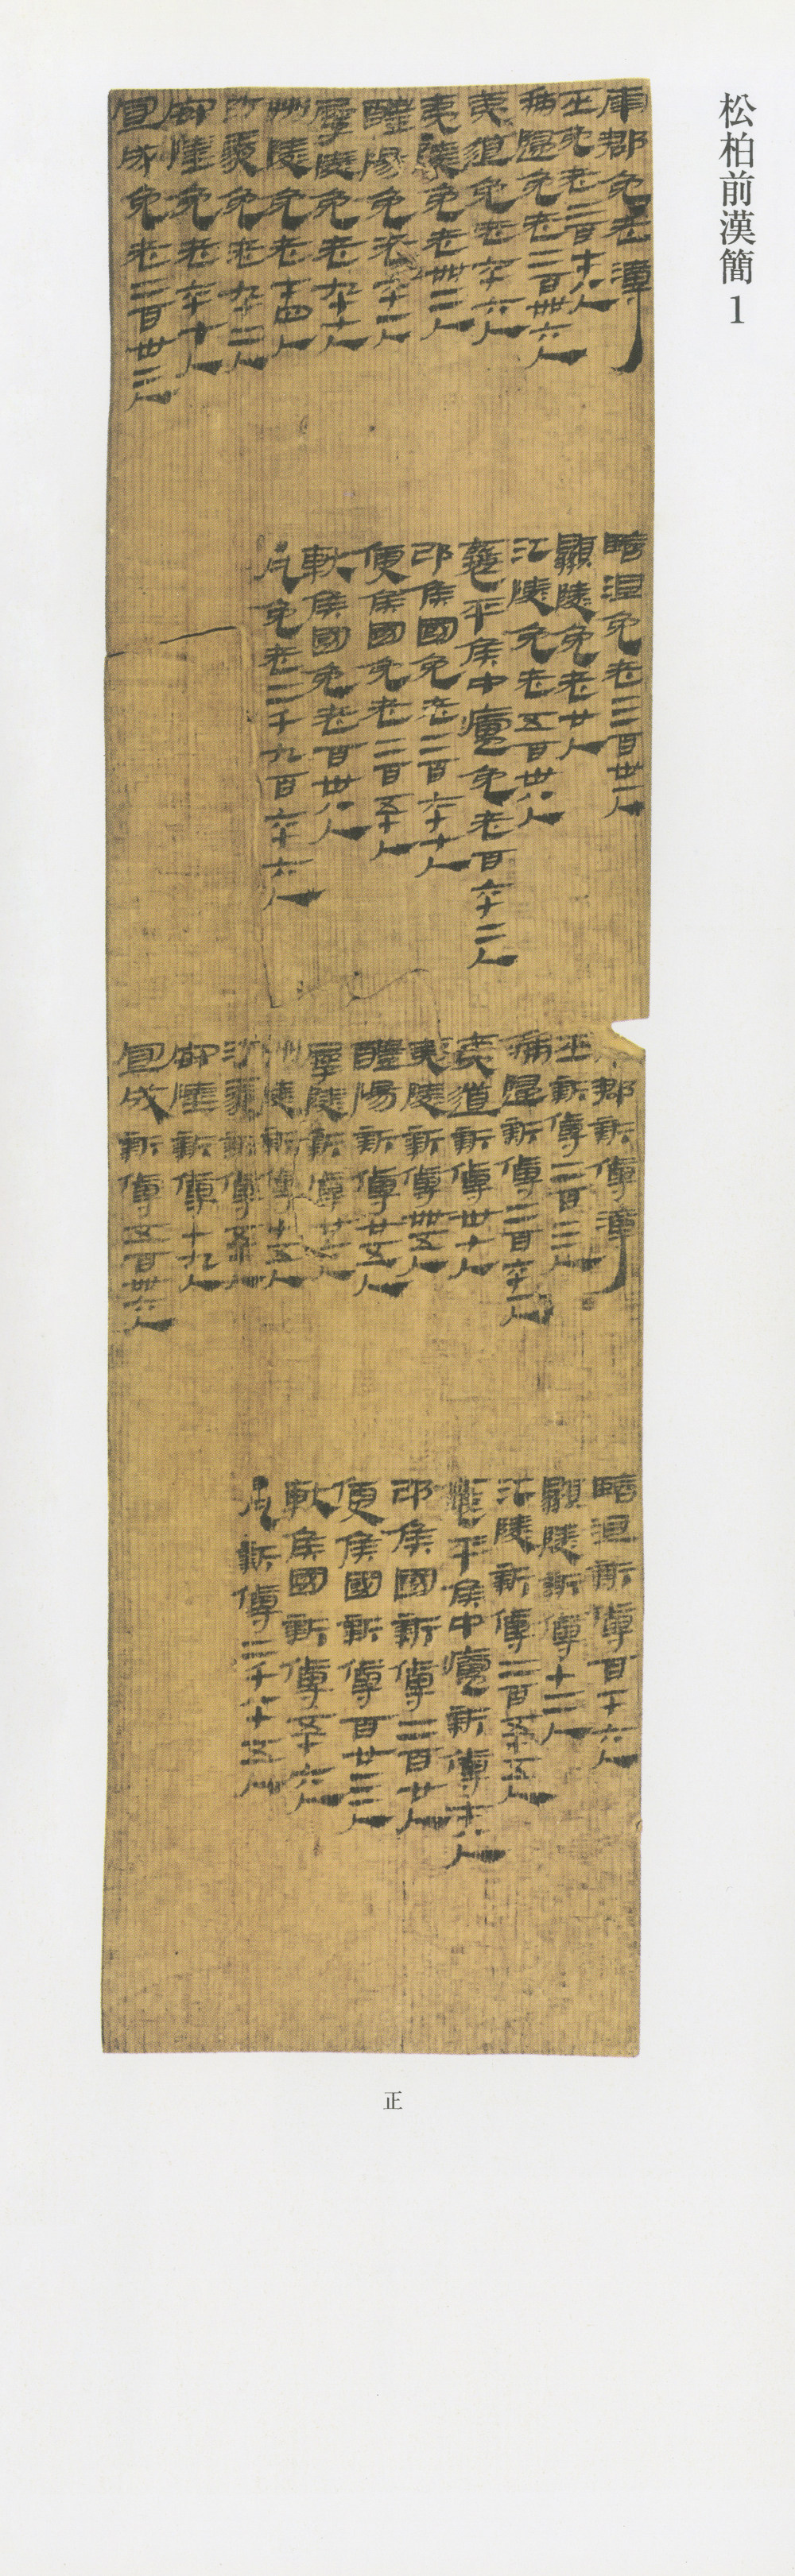 松柏前漢簡 1
南郡免老簿
巫免老二百七十八人
秭歸免老二百卌六人
夷道免老六十六人
夷陵免老卌二人
醴陽免老六十一人
孱陵免老九十七人
州陵免老七十四人
沙羨免老九十二人
安陸免老六十七人
宜成免老二百卅二人
臨沮免老三百卅一人
顯陵免老廿人
江陵免老五百卅八人
襄平侯中廬免老百六十二人
邔侯國免老二百六十七人
便侯國免老二百五十人
軑侯國免老百卅八人
凡免老二千九百六十六人
郡新傅簿
巫新傅二百三人
秭歸新傅二百六十一人
夷道新傅卅七人
夷陵新傅卌五人
醴陽新傅廿五人
孱陵新傅廿六人
州陵新傅十五人
沙羨新傅五十人
安陸新傅十九人
宜成新傅五百卌六人
臨沮新傅百一十六人
顯陵新傅十二人
江陵新傅二百五十五人
襄平侯中廬新傅七十八人
邔侯國新傅二百廿人
便侯國新傅百廿三人
軑侯國新傅五十六人
凡新傅二千八十五人
正